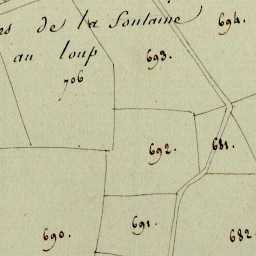 rs de la Fontaine
694.
au loup
693.
706
692.
681.
690.
691.
682.